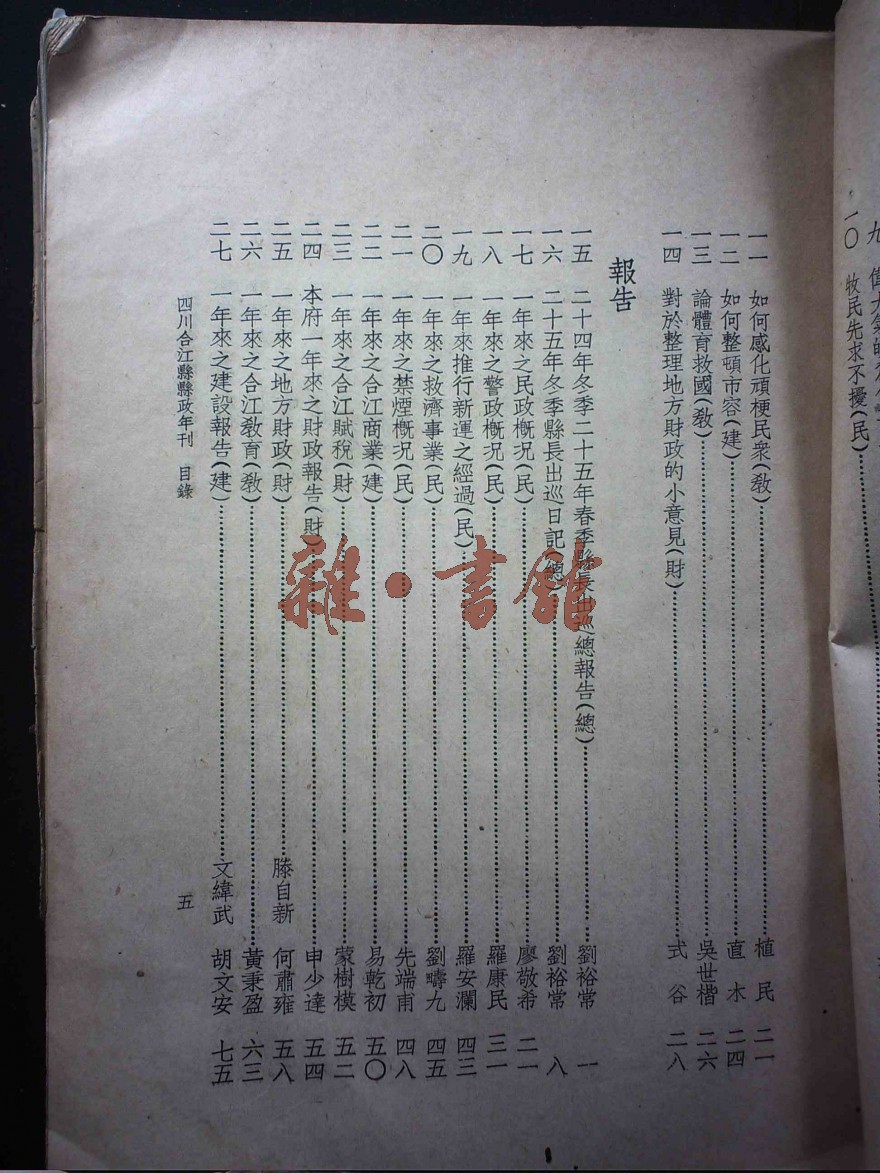 一〇 牧民先求不擾(民)
一一 如何感化頑梗民衆(敎)……植民 二一
一二 如何整頓市容(建)……直木 二四
一三 論體育救國(敎)……吳世楷 二六
一四 對於整理地方財政的小意見(財)……式谷 二八
報告
一五 二十四年冬季二十五年春季縣長出巡總報告(總)……劉裕常 一
一六 二十五年冬季縣長出巡日記(總)……劉裕常 八
一七 一年來之民政概況(民)……廖敬希 二一
一八 一年來之警政概況(民)……羅康民 三一
一九 一年來推行新運之經過(民)……羅安瀾 四三
二〇 一年來之救濟事業(民)……劉疇九 四五
二一 一年來之禁煙概況(民)……先端甫 四八
二二 一年來之合江商業(建)……易乾初 五〇
二三 一年來之合江賦稅(財)……蒙樹模 五二
二四 本府一年來之財政報告(財)……申少達 五四
二五 一年來之地方財政(財)……滕自新 何肅雍 五八
二六 一年來之合江敎育(敎)……黃秉盈 六三
二七 一年來之建設報告(建)……文緯武 胡文安 七五
四川合江縣縣政年刊 目錄 五
雜·書館